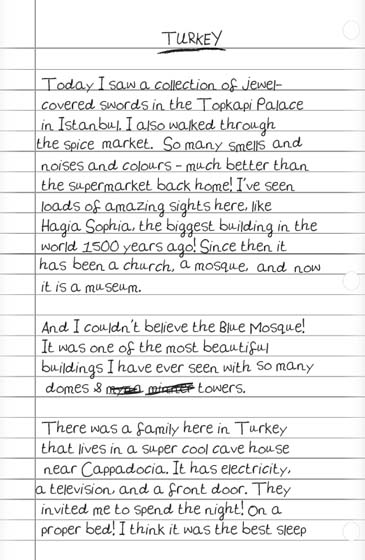 TURKEY
Today I saw a collection of jewel-
covered swords in the Topkapi Palace
in Istanbul. I also walked through
the spice market. So many smells and
noises and colours - much better than
the supermarket back home! I've seen
loads of amazing sights here, like
Hagia Sophia, the biggest building in the
world 1500 years ago! Since then it
has been a church, a mosque, and now
it is a museum.
And I couldn't believe the Blue Mosque!
It was one of the most beautiful
buildings I have ever seen with so many
domes & towers.
There was a family here in Turkey
that lives in a super cool cave house
near Cappadocia. It has electricity,
a television, and a front door. They
invited me to spend the night! On a
proper bed! I think it was the best sleep